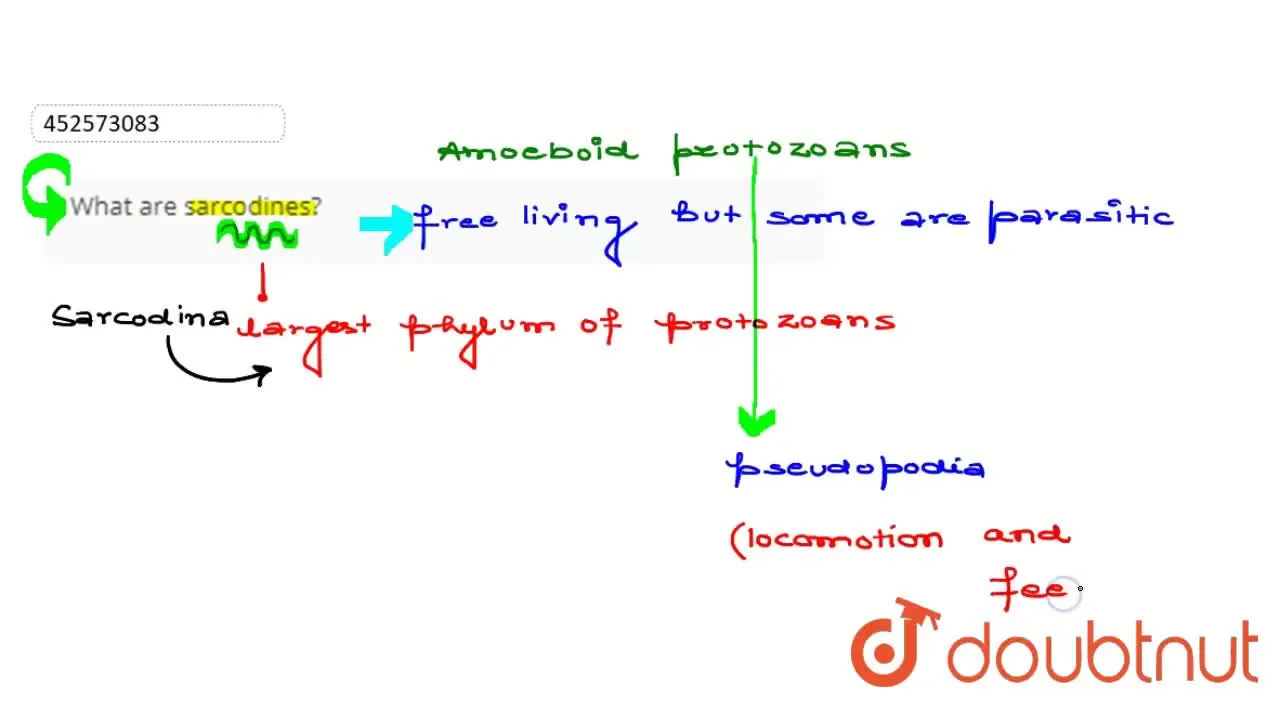 452573083
Amoeboid protozoans
What are sarcodines?
free living but some are parasitic
Sarcodina largest phylum of protozoans
pseudopodia
(locomotion and
fee
doubtnut